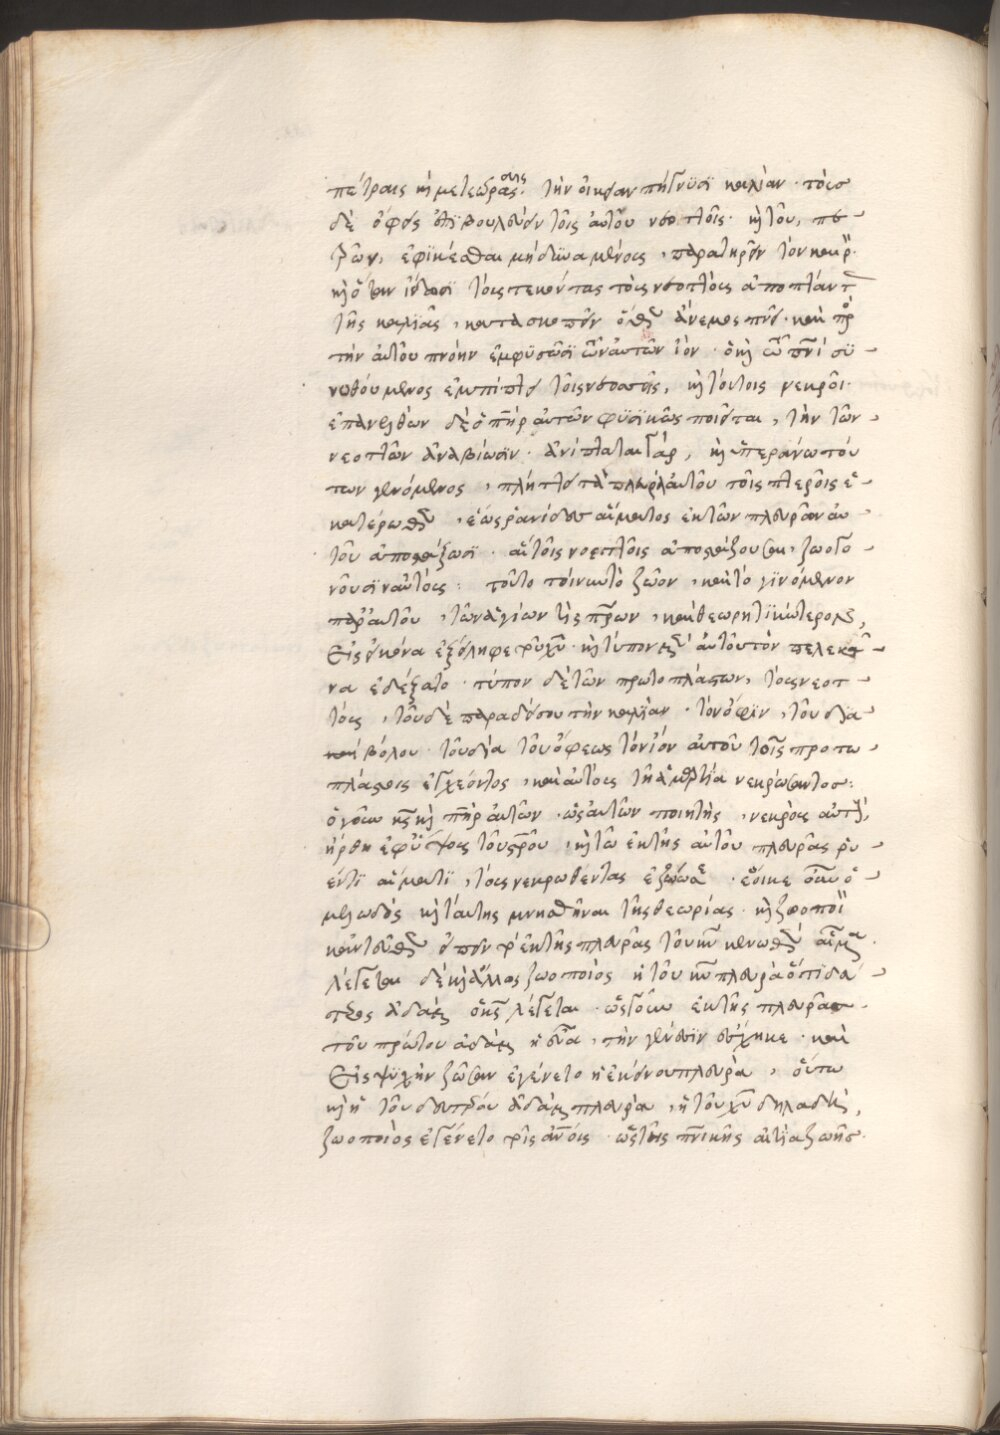 πέτραις κ̀ μετεώραις· τὴν οἰκείαν πήγνυσι καλιὰν· τὸ εσ
δὲ ὄφις ἐπιβουλεύει τοῖς αὐτοῦ νεοττοῖς· κ̀ τοῦ, πε
ζῶν, ἐφικέσθαι μὴ δυνάμενος, παρατηρεῖ τὸν καιρ
κ̀ ὅταν ἴδωσι τοὺς τεκόντας τοὺς νεοττοὺς ἀποπτάντ
τῆς καλιᾶς, κατασκοπεῖ ὅθεν ἄνεμος πνεῖ· καὶ πρὸ
τὴν αὐτοῦ πνοὴν ἐμφυσῶσι αὐτῶν ἰὸν· ὁ κ̀ τῶ πνι συ
νωθούμενος ἐμπίπτει τοῖς νεοττοῖς, κ̀ τούτοις νεκροῖ·
ἐπανελθὼν δὲ ὁ πηρ αὐτῶν φυσικῶς ποιεῖται, τὴν τῶν
νεοττῶν ἀναβίωσιν· ἀνίπταται γάρ, κ̀ ὑπεράνω τού
των γενόμενος, πλήττει τὰ πλευρὰ αὐτοῦ τοῖς πτεροῖς ἑ
κατέρωθεν, ἕως ῥανίδες αἵματος ἐκ τῶν πλευρῶν αὐ
τοῦ ἀποστάξωσι· αἳ τοῖς νοσσοῖς ἀποστάζουσαι, ζωογο
νοῦσιν αὐτούς: τοῦτο τοίνυν τὸ ζῶον, καὶ τὸ γινόμενον
παρ αὐτοῦ, τῶν ἁγίων τὶς πρων, καὶ θεωρητικώτερον,
Εἰς εἰκόνα ἐξείληφε τοῦ χυ· κ̀ τύπον μὲν αὐτοῦ τὸν πελεκᾶ
να ἐδέξατο· τύπον δὲ τῶν πρωτοπλάστων, τοὺς νεοτ
τοὺς, τοῦ δὲ παραδείσου τὴν καλιὰν· τὸν ὄφιν, τοῦ δια
βόλου· τοῦ διὰ τοῦ ὄφεως τὸν ἰὸν αὐτοῦ τοῖς πρωτο
πλάστοις ἐγχέοντος, καὶ αὐτοὺς τῇ ἁμαρτία νεκρώσαντος:
ὁ γοῦν κς κ̀ πηρ αὐτῶν· ὡς αὐτῶν ποιητὴς, νεκροὺς αὐτοὺς
ἤρθη ἐφ ὕψους τοῦ στρου, κ̀ τῶ ἐκ τῆς αὐτοῦ πλευρᾶς ῥυ
έντι αἵματι, τοὺς νεκρωθέντας ἐζώωσε· ἔοικε οὖν ὁ
μελωδὸς κ̀ ταύτης μνησθῆναι τῆς θεωρίας· κ̀ ζωοποι
κ̀ν τὸ εἰπεῖν τὸ ἐκ τῆς πλευρᾶς τοῦ κυ κενωθὲν αἷμα·
λέγεται δὲ κ̀ ἄλλως ζωοποιὸς ἡ τοῦ κυ πλευρὰ ὅτι δεύ
τερος ἀδὰμ ὁ κς λέγεται· ὥσπερ οὖν ἐκ τῆς πλευρᾶς
τοῦ πρώτου ἀδὰμ ἡ εὔα, τὴν γένεσιν ἔσχηκε· καὶ
Εἰς ψυχὴν ζῶσαν ἐγένετο ἡ ἐκείνου πλευρὰ, οὕτω
κ̀ ἡ τοῦ δευτέρου ἀδὰμ πλευρὰ, ἡ τοῦ χυ δηλαδὴ,
ζωοποιὸς ἐγένετο τοῖς ἀνοις· ὡς τῆς πνικῆς αἰτία ζωῆς·